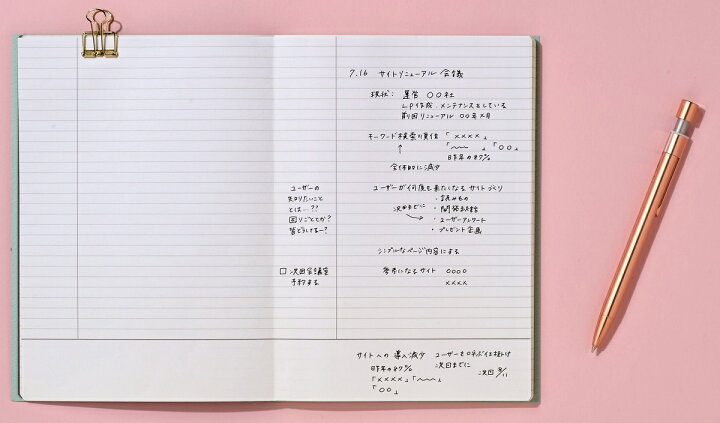 7.16 サイトリニューアル会議
現状: 運営 〇〇社
LP作成、メンテナンスをしている
前回リニューアル 〇〇年×月
キーワード検索の責任 「××××」
↑ 「〜〜」「〇〇」
昨年の87%
全体的に減少
ユーザーの
知りたいこと
とは…??
困りごととか?
皆どうしてるー?
ユーザーが何度も来たくなるサイトづくり
・読みもの
次回までに
・開発
・ユーザーアンケート
・プレゼント企画
シンプルなページ内容にする
□ 次回会議室
予約する
参考になるサイト 〇〇〇〇
××××
サイトへの導入減少
昨年の87%
「××××」「〜〜」
「〇〇」
ユーザー
次回までに
次回 8/11